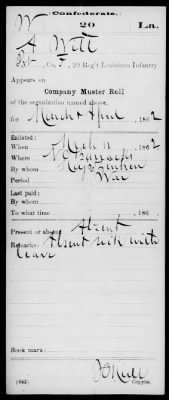 Confederate.
W 20 La.
A Witt
Pvt, Co. F, 20 Reg't Louisiana Infantry.
Appears on
Company Muster Roll
of the organization named above,
for March & April, 1862
Enlisted:
When Mch 11, 1862
Where N O Barracks
By whom
Period War
Last paid:
By whom
To what time , 186 .
Present or absent Absent
Remarks: Absent sick with
leave
Book mark:
(642) Copyist.